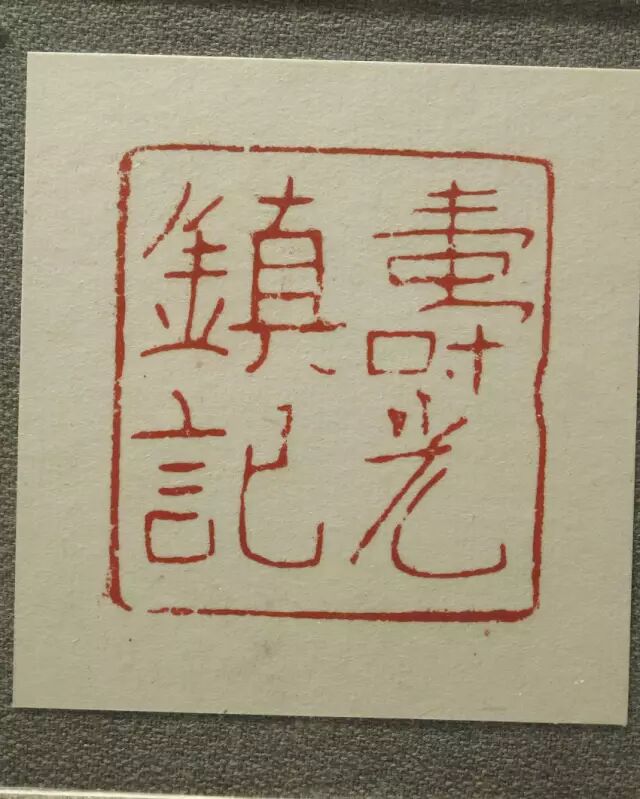 壽光
鎮記